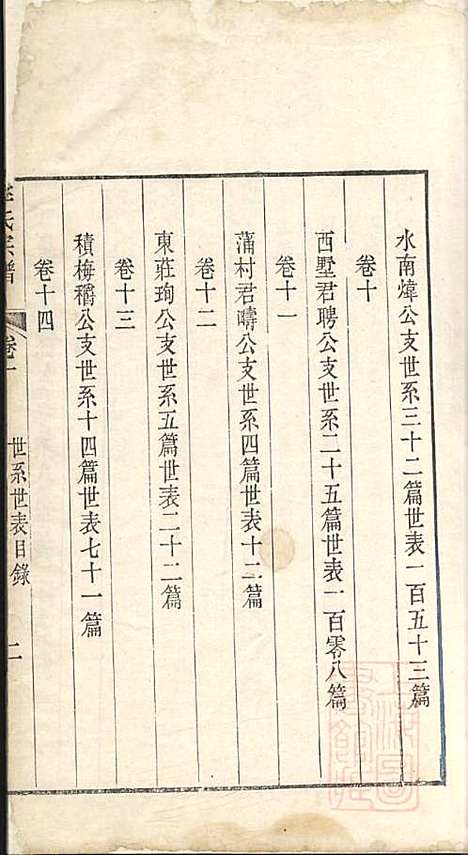 水南煒公支世系三十二篇世表一百五十三篇
卷十
西墅君聘公支世系二十五篇世表一百零八篇
卷十一
蒲村君疇公支世系四篇世表十二篇
卷十二
東莊珣公支世系五篇世表二十二篇
卷十三
積梅稱公支世系十四篇世表七十一篇
卷十四
氏宗譜
卷一
世系世表目錄
二